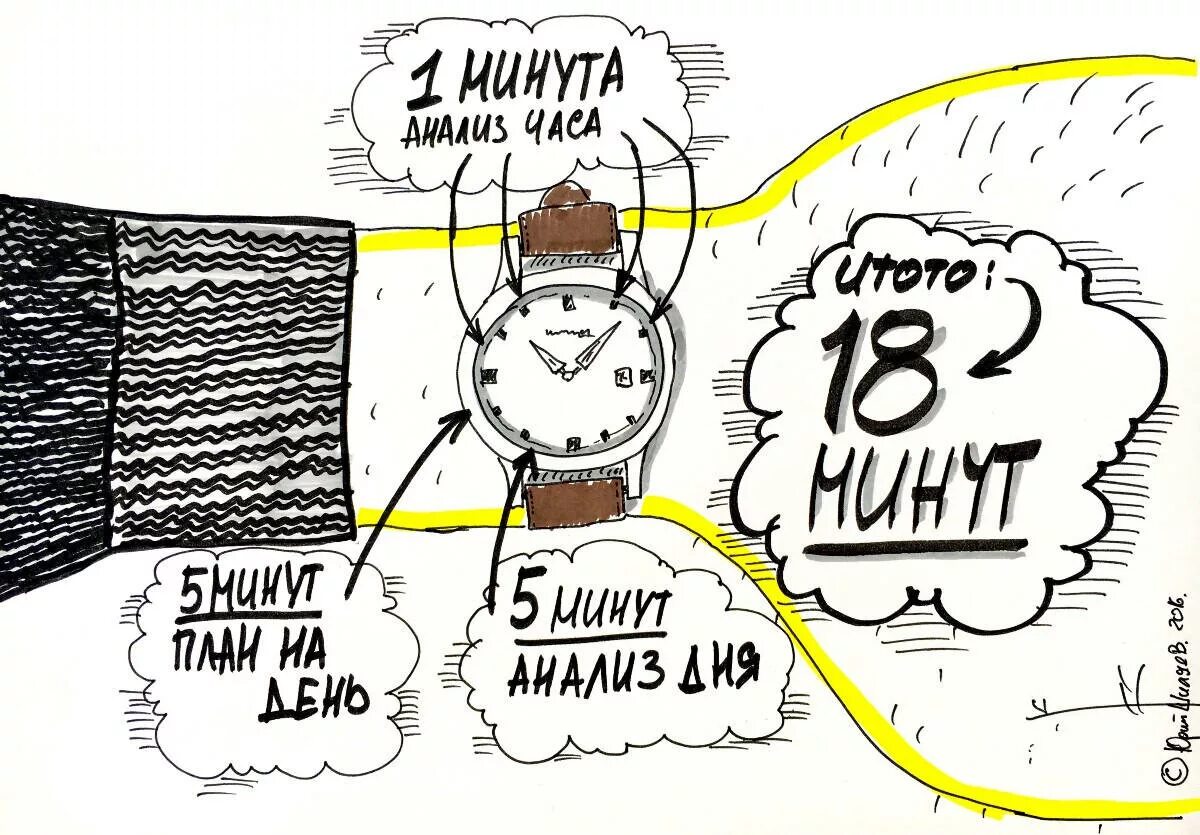 1 МИНУТА
АНАЛИЗ ЧАСА
ИТОТО:
18
МИНУТ
5 МИНУТ
ПЛАН НА
ДЕНЬ
5 МИНУТ
АНАЛИЗ ДНЯ
© Юрий 2016.